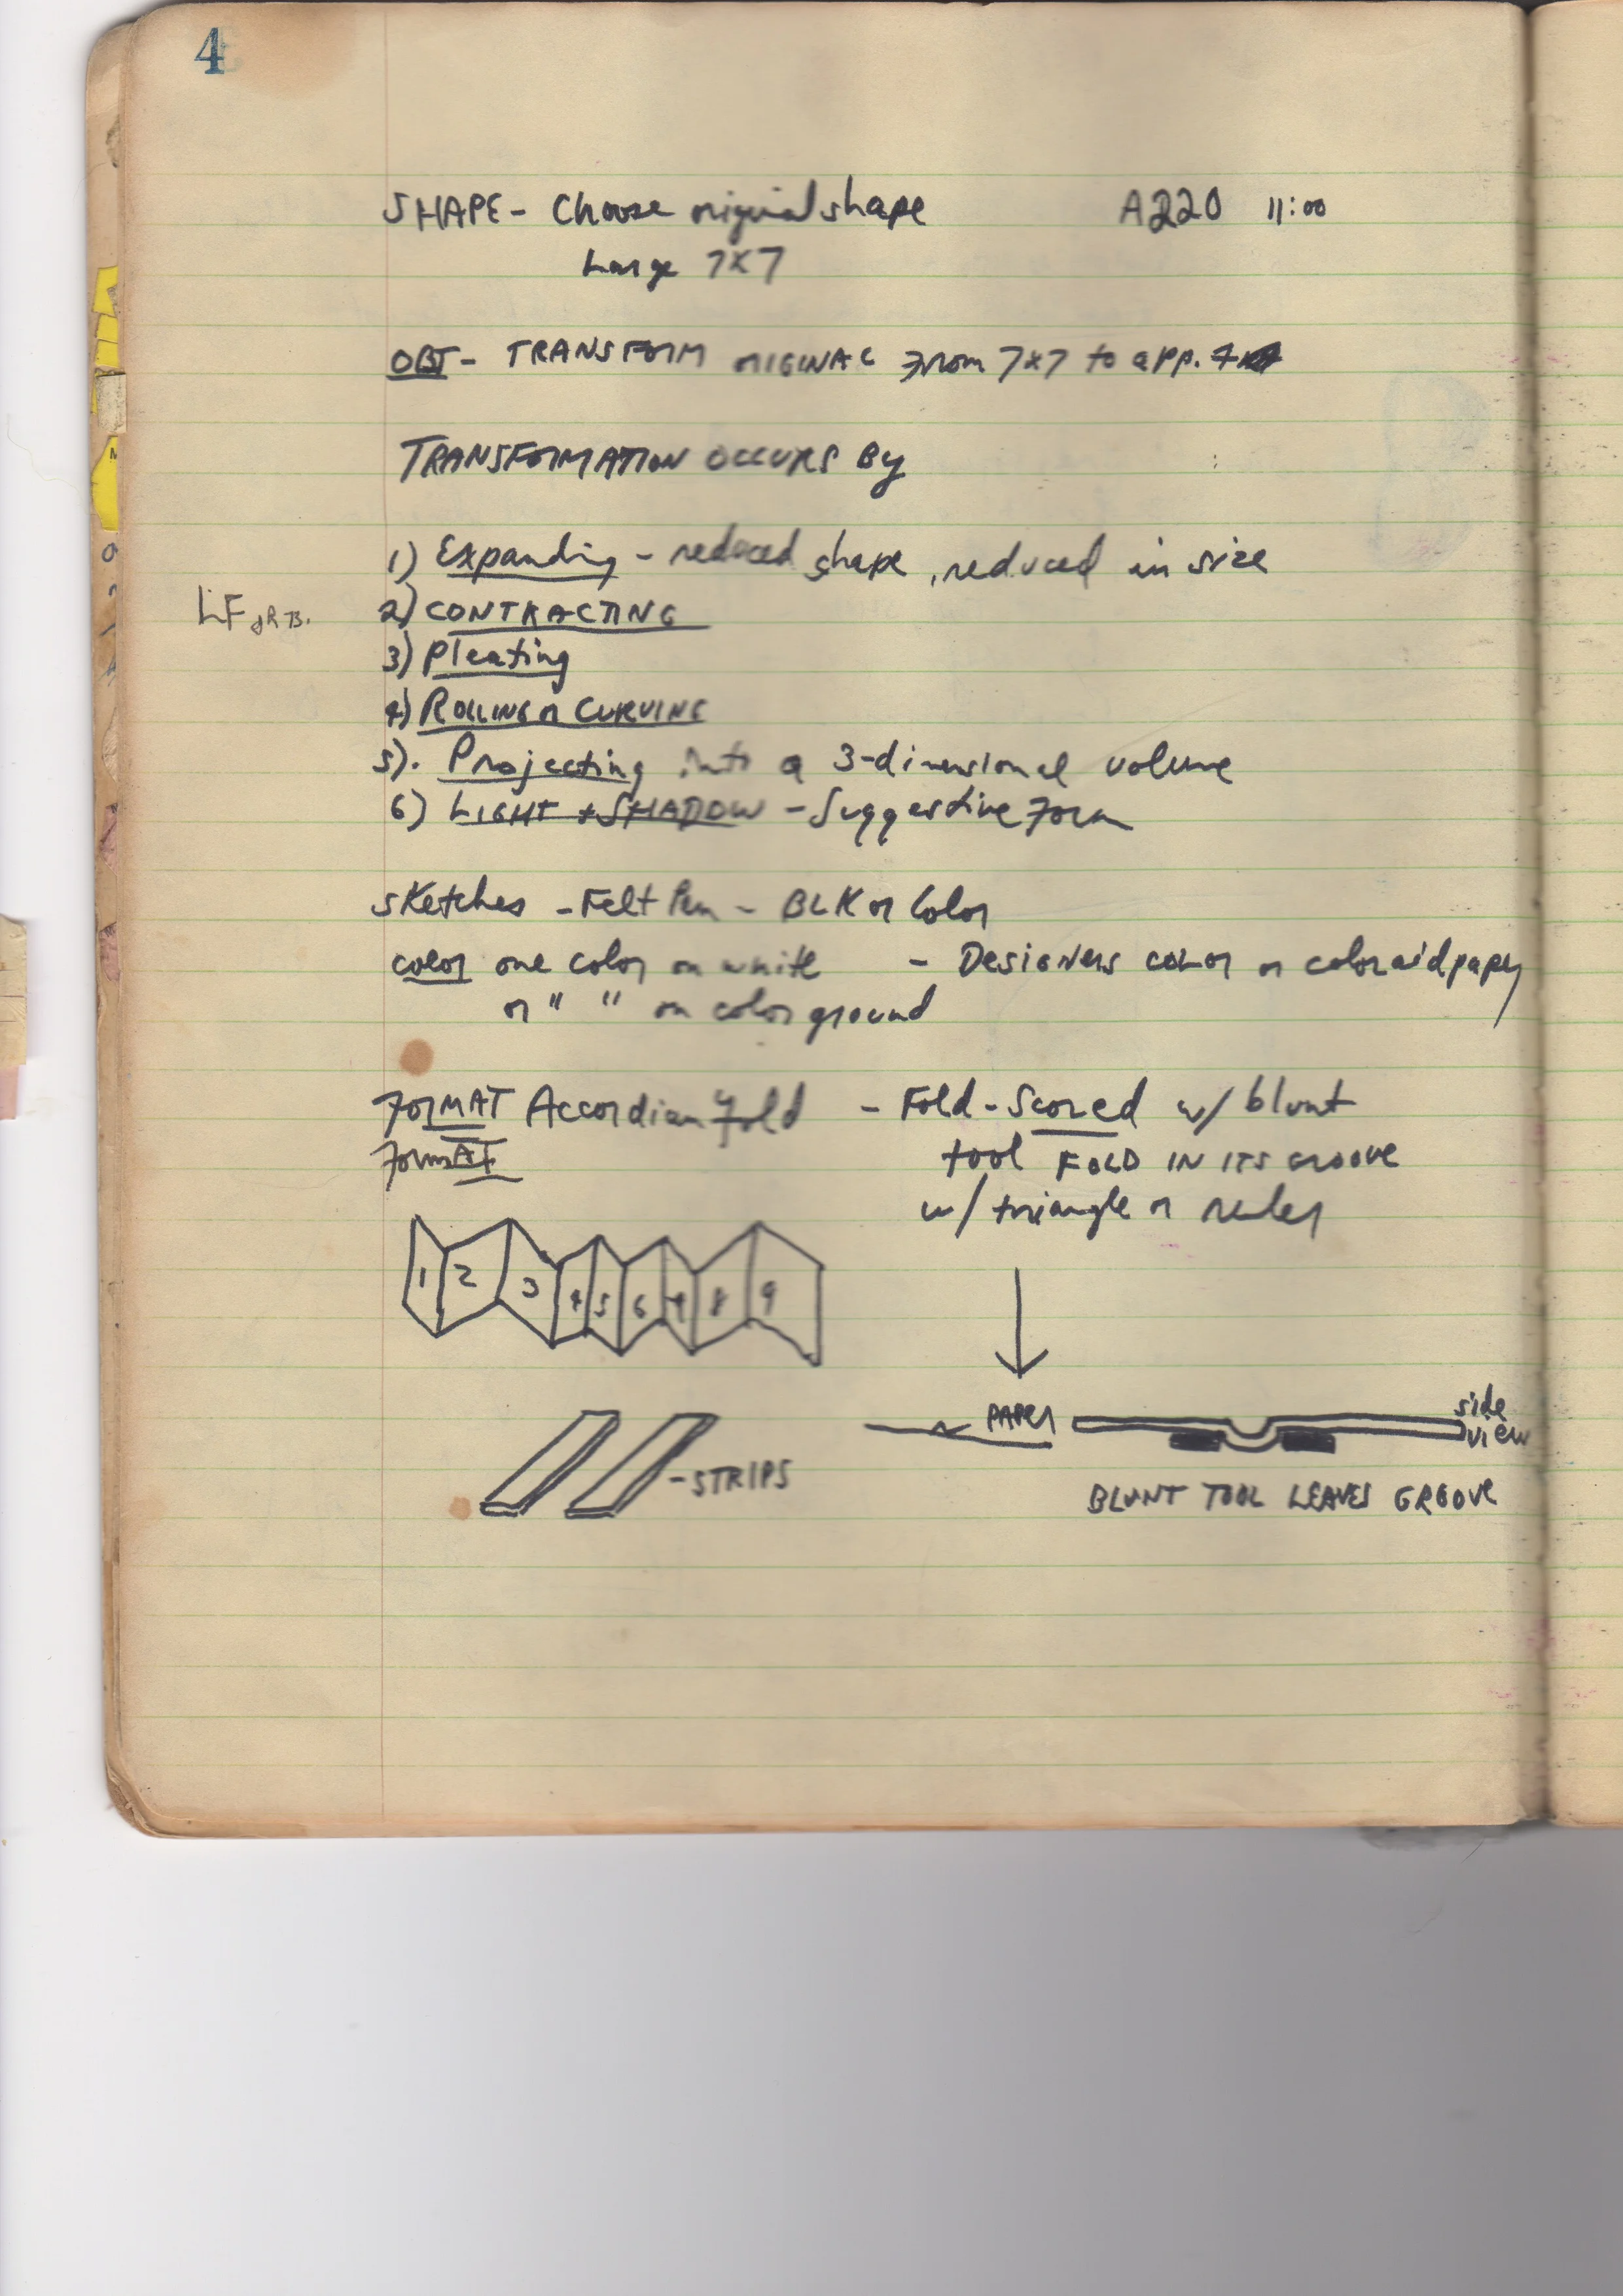 4
SHAPE - Choose original shape A220 11:00
Large 7x7
OBJ - TRANSFORM ORIGINAL From 7x7 to app.
TRANSFORMATION OCCURS By
1) Expanding - reduced shape, reduced in size
2) CONTRACTING
3) Pleating
4) ROLLING or CURVING
5). Projecting into a 3-dimensional volume
6) LIGHT + SHADOW - Suggestive Form
Sketches - Felt Pen - BLK or Color
color one color on white - Designers color or coloraid paper
or " " on color ground
FORMAT Accordian Fold - Fold - Scored w/ blunt
FORMAT tool FOLD IN ITS GROOVE
w/ triangle or ruler
1 2 3 4 5 6 7 8 9
PAPER side
view
- STRIPS
BLUNT TOOL LEAVES GROOVE